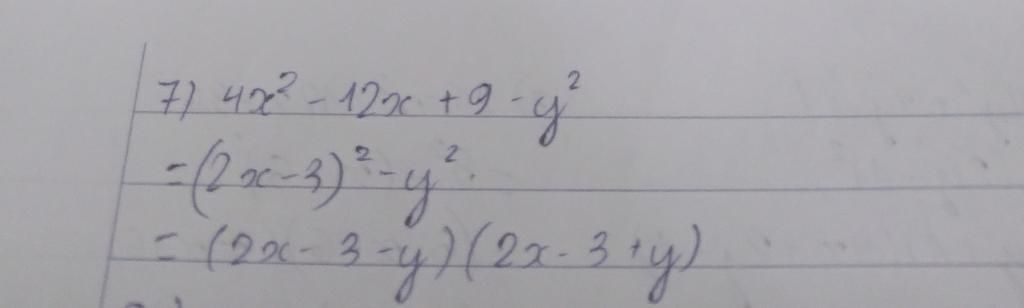 7) 4x² - 12x + 9 - y²
= (2x - 3)² - y².
= (2x - 3 - y)(2x - 3 + y)